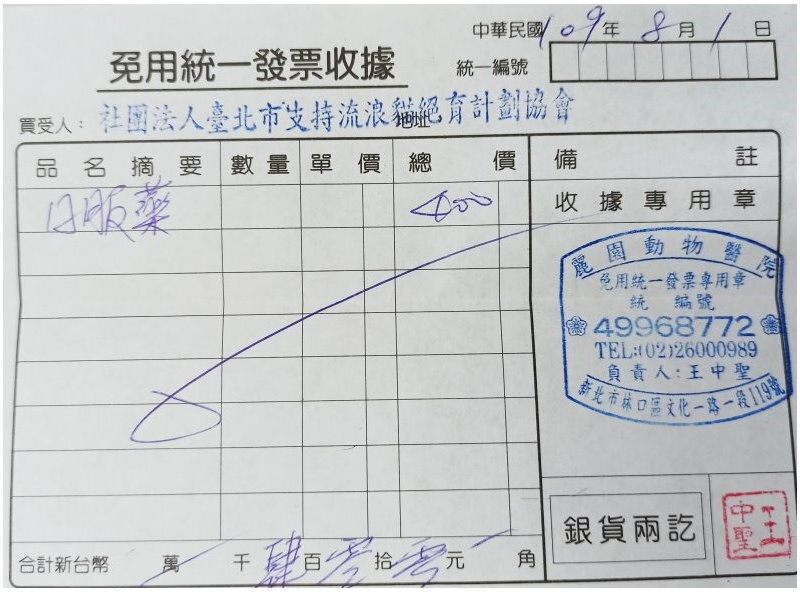 中華民國109年8月1日
免用統一發票收據
統一編號
買受人： 社團法人臺北市支持流浪貓絕育計劃協會
地址
品名摘要 數量 單價 總價 備註
口服藥 400
收據專用章
麗園動物醫院
免用統一發票專用章
統一編號
49968772
TEL:(02)26000989
負責人:王中聖
新北市林口區文化一路一段119號
銀貨兩訖
王中聖
合計新台幣 萬 千肆百零拾零元 角